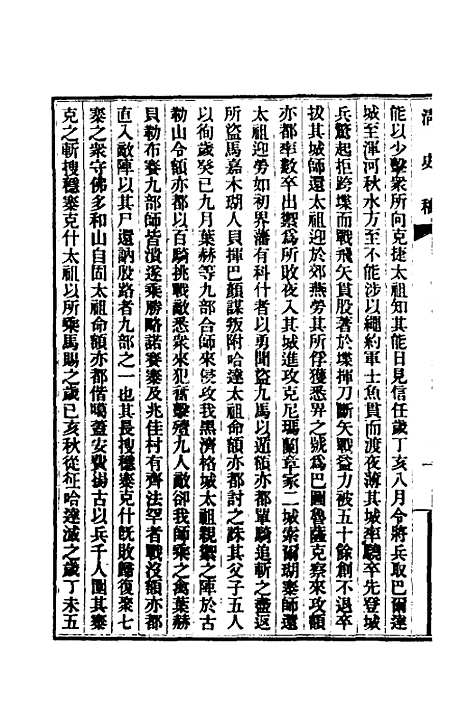 清史稿
一
能以少擊衆所向克捷太祖知其能日見信任歲丁亥八月令將兵取巴爾達
城至渾河秋水方至不能涉以繩約軍士魚貫而渡夜薄其城率驍卒先登城
兵驚起拒跨堞而戰飛矢貫股著於堞揮刀斷矢戰益力被五十餘創不退卒
拔其城師還太祖迎於郊燕勞其所俘獲悉畀之號爲巴圖魯薩克察來攻額
亦都率數卒出禦爲所敗夜入其城進攻克尼瑪蘭章家二城索爾瑚寨師還
太祖迎勞如初界藩有科什者以勇聞盜九馬以遁額亦都單騎追斬之盡返
所盜馬嘉木瑚人貝揮巴顏謀叛附哈達太祖命額亦都討之誅其父子五人
以徇歲癸巳九月葉赫等九部合師來侵攻我黑濟格城太祖親禦之陣於古
勒山令額亦都以百騎挑戰敵悉衆來犯奮擊殪九人敵卻我師乘之禽葉赫
貝勒布賽九部師皆潰遂乘勝略諾賽寨及兆佳村有齊法罕者戰沒額亦都
直入敵陣以其尸還訥殷路者九部之一也其長搜穩塞克什既敗歸復聚七
寨之衆守佛多和山自固太祖命額亦都偕噶蓋安費揚古以兵千人圍其寨
克之斬搜穩塞克什太祖以所乘馬賜之歲己亥秋從征哈達滅之歲丁未五